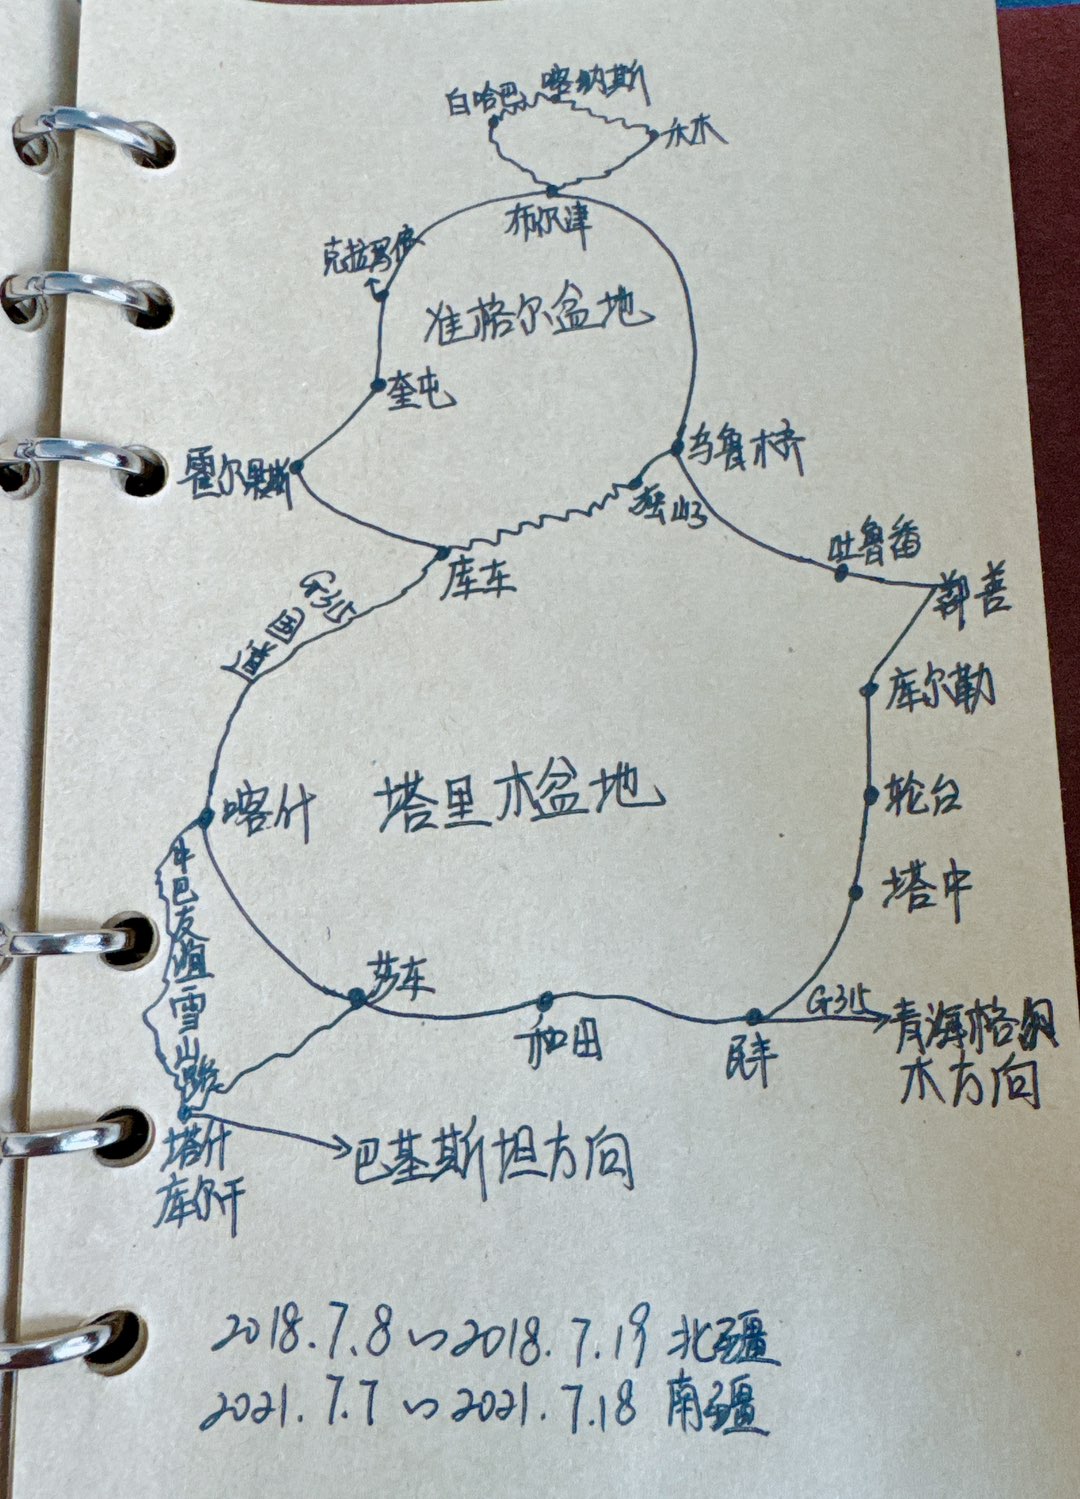 白哈巴
喀纳斯
禾木
布尔津
克拉玛依
准格尔盆地
奎屯
霍尔果斯
乌鲁木齐
独山子
吐鲁番
鄯善
库车
G315
国道
库尔勒
喀什
塔里木盆地
轮台
塔中
中巴友谊雪山路
莎车
和田
民丰
G315
青海格尔
木方向
塔什
库尔干
巴基斯坦方向
2018.7.8~2018.7.19 北疆
2021.7.7~2021.7.18 南疆